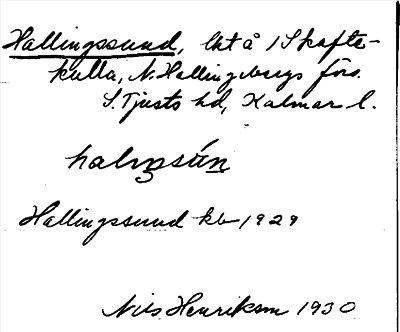 Hallingssund, lht å 1 Skafte-
kulla, N. Hallingebergs förs.
S. Tjusts hd, Kalmar l.
Hallingssund kb 1929
Nils Henrikson 1930